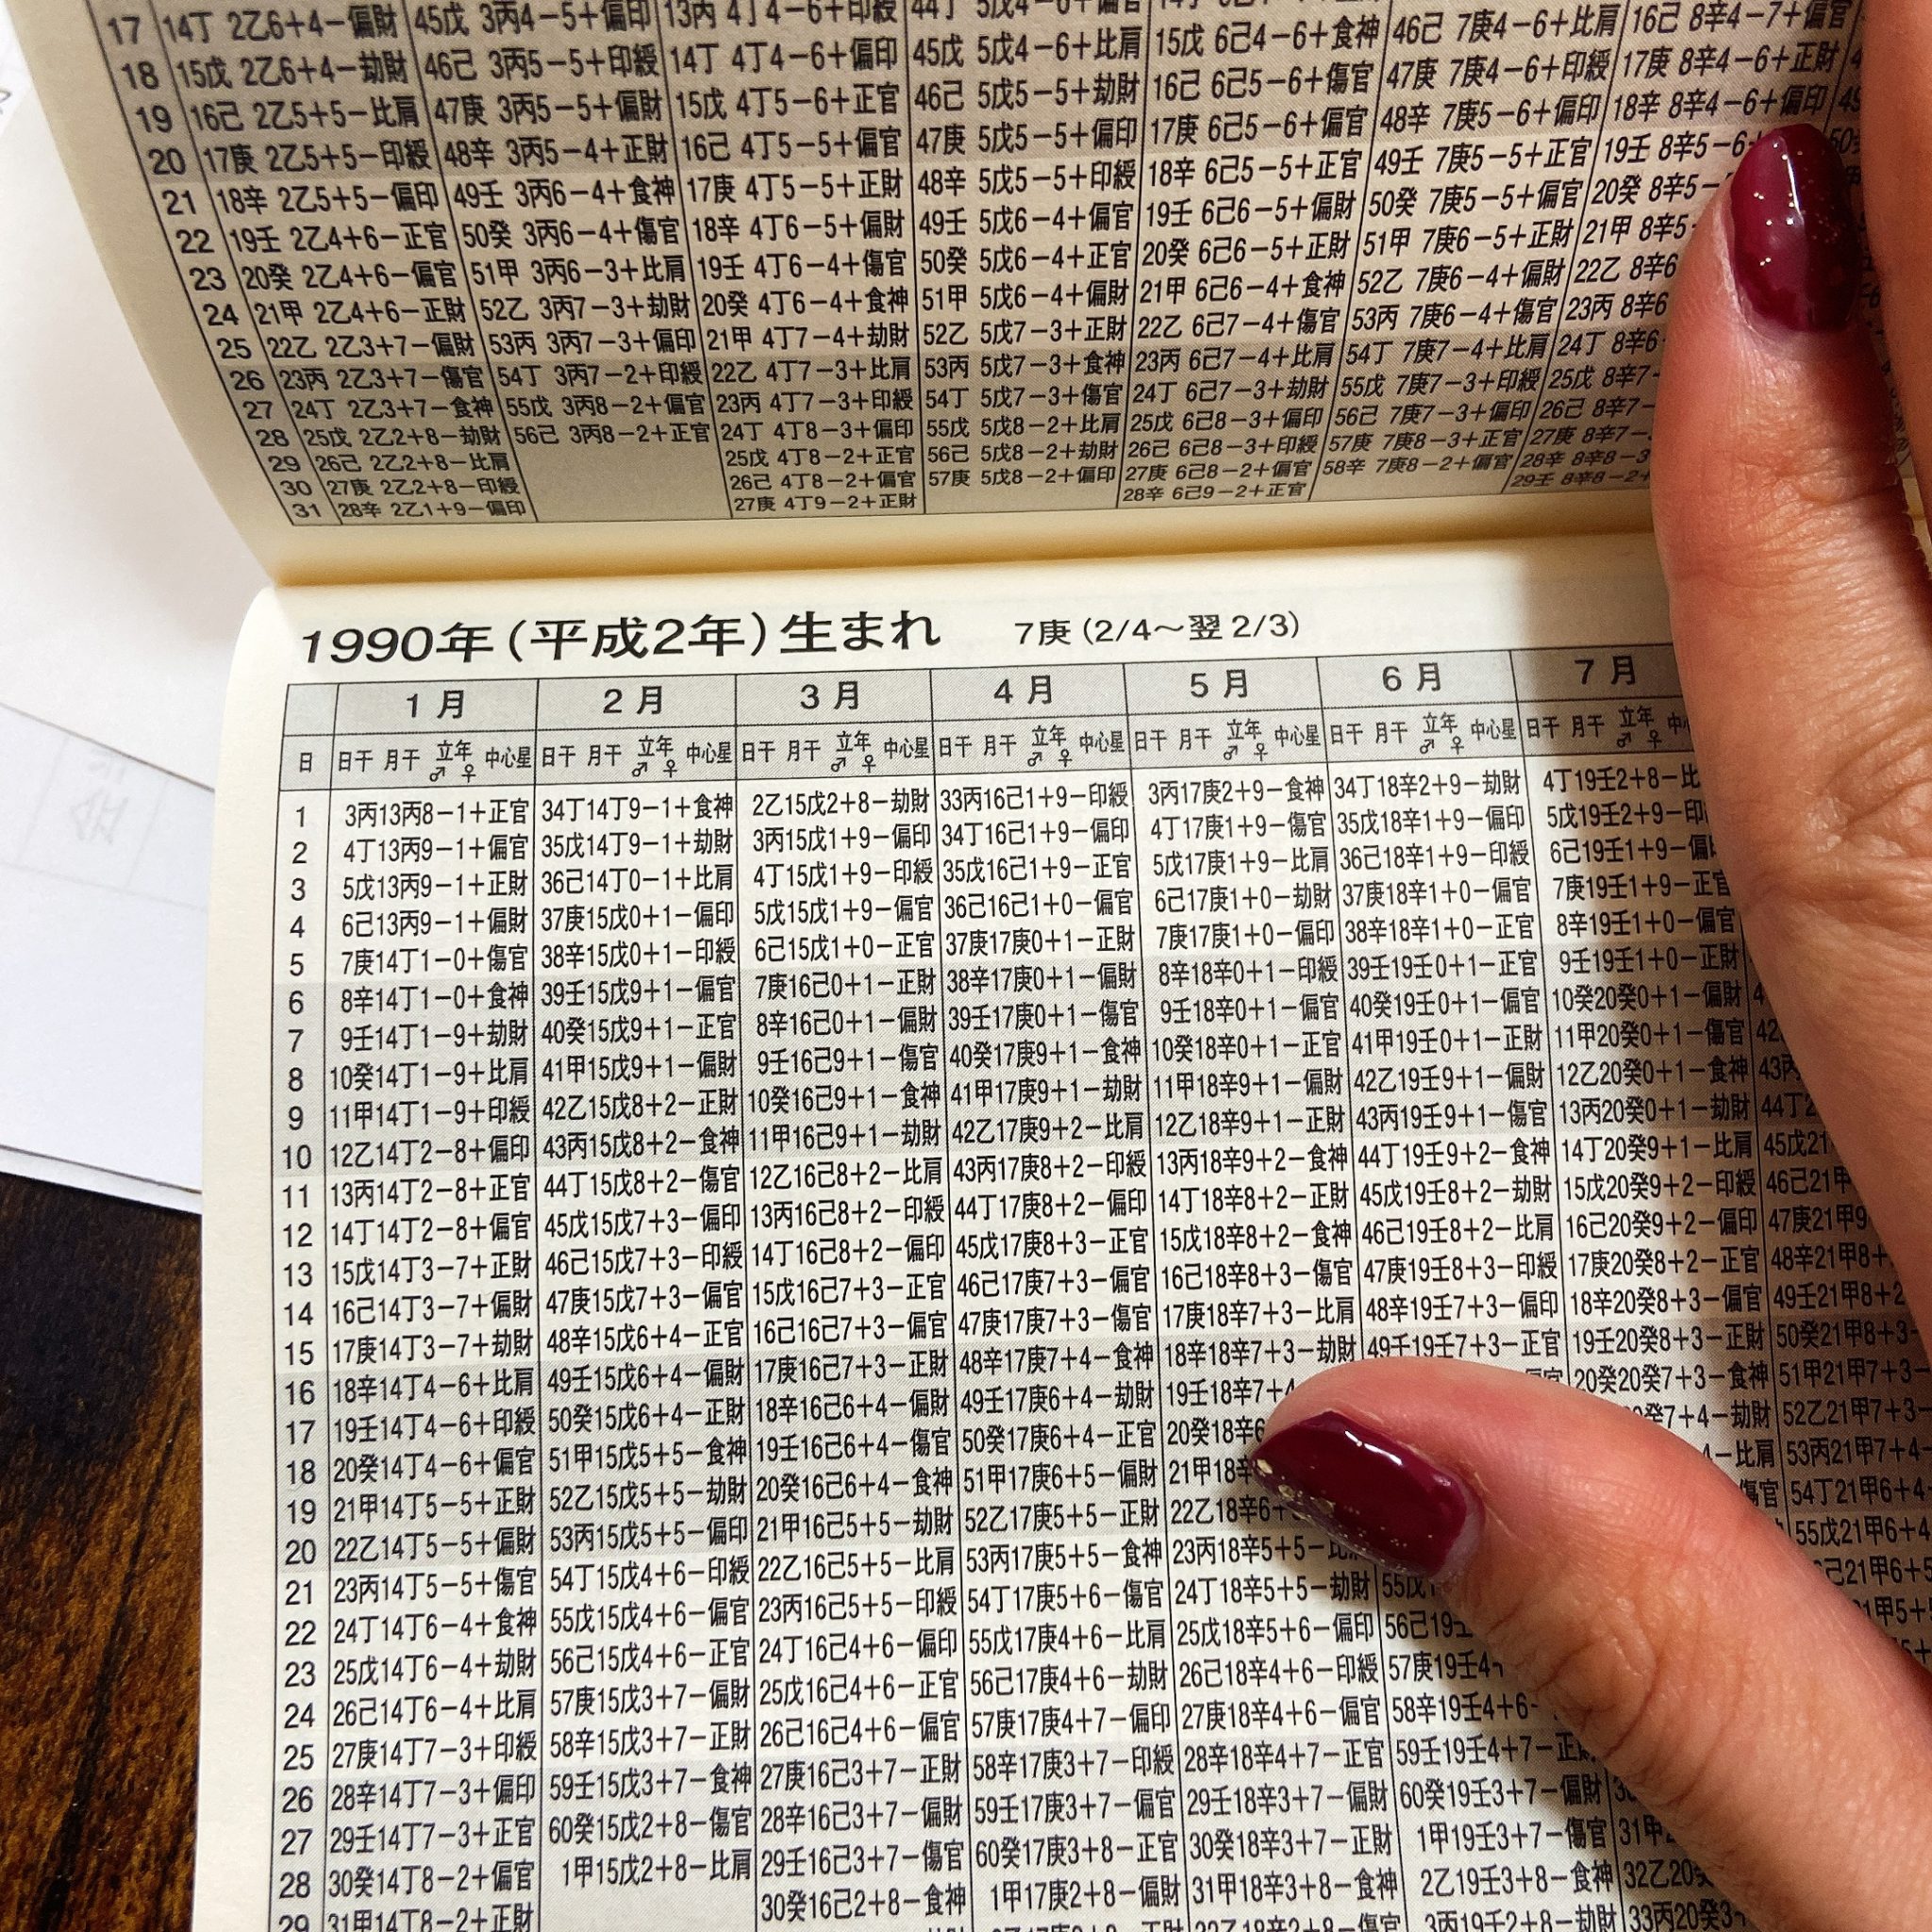 17 14丁 2乙6+4−偏財 45戊 3丙4−5+偏印 13丙 4丁4−6+印綬 44丁 5戊4−6+偏官
18 15戊 2乙6+4−劫財 46己 3丙5−5+印綬 14丁 4丁4−6+偏印 45戊 5戊4−6+比肩 15戊 6己4−6+食神 46己 7庚4−6+比肩 16己 8辛4−7+偏官
19 16己 2乙5+5−比肩 47庚 3丙5−5+偏財 15戊 4丁5−6+正官 46己 5戊5−5+劫財 16己 6己5−6+傷官 47庚 7庚4−6+印綬 17庚 8辛4−6+正財
20 17庚 2乙5+5−印綬 48辛 3丙5−4+正財 16己 4丁5−5+偏官 47庚 5戊5−5+偏印 17庚 6己5−6+偏官 48辛 7庚5−6+偏印 18辛 8辛4−6+偏印
21 18辛 2乙5+5−偏印 49壬 3丙6−4+食神 17庚 4丁5−5+正財 48辛 5戊5−5+印綬 18辛 6己5−5+正官 49壬 7庚5−5+正官 19壬 8辛5−6
22 19壬 2乙4+6−正官 50癸 3丙6−4+傷官 18辛 4丁6−5+偏財 49壬 5戊6−4+偏官 19壬 6己6−5+偏財 50癸 7庚5−5+偏官 20癸 8辛5
23 20癸 2乙4+6−偏官 51甲 3丙6−3+比肩 19壬 4丁6−4+傷官 50癸 5戊6−4+正官 20癸 6己6−5+正財 51甲 7庚6−5+正財 21甲 8辛5
24 21甲 2乙4+6−正財 52乙 3丙7−3+劫財 20癸 4丁6−4+食神 51甲 5戊6−4+偏財 21甲 6己6−4+食神 52乙 7庚6−4+偏財 22乙 8辛6
25 22乙 2乙3+7−偏財 53丙 3丙7−3+偏印 21甲 4丁7−4+劫財 52乙 5戊7−3+正財 22乙 6己7−4+傷官 53丙 7庚6−4+傷官 23丙 8辛6
26 23丙 2乙3+7−傷官 54丁 3丙7−2+印綬 22乙 4丁7−3+比肩 53丙 5戊7−3+食神 23丙 6己7−4+比肩 54丁 7庚7−4+比肩 24丁 8辛6
27 24丁 2乙3+7−食神 55戊 3丙8−2+偏官 23丙 4丁7−3+印綬 54丁 5戊7−3+傷官 24丁 6己7−3+劫財 55戊 7庚7−3+印綬 25戊 8辛7
28 25戊 2乙2+8−劫財 56己 3丙8−2+正官 24丁 4丁8−3+偏印 55戊 5戊8−2+比肩 25戊 6己8−3+偏印 56己 7庚7−3+偏印 26己 8辛7
29 26己 2乙2+8−比肩 25戊 4丁8−2+正官 56己 5戊8−2+劫財 26己 6己8−3+印綬 57庚 7庚8−3+正官 27庚 8辛7
30 27庚 2乙2+8−印綬 26己 4丁8−2+偏官 57庚 5戊8−2+偏印 27庚 6己8−2+偏官 58辛 7庚8−2+偏官 28辛 8辛8−3
31 28辛 2乙1+9−偏印 27庚 4丁9−2+正財 28辛 6己9−2+正官 29壬 8辛8−2+
1990年(平成2年)生まれ 7庚(2/4〜翌2/3)
1月 2月 3月 4月 5月 6月 7月
日 日干 月干 立年 ♂ ♀ 中心星 日干 月干 立年 ♂ ♀ 中心星 日干 月干 立年 ♂ ♀ 中心星 日干 月干 立年 ♂ ♀ 中心星 日干 月干 立年 ♂ ♀ 中心星 日干 月干 立年 ♂ ♀ 中心星 日干 月干 立年 ♂ ♀
1 3丙13丙8−1+正官 34丁14丁9−1+食神 2乙15戊2+8−劫財 33丙16己1+9−印綬 3丙17庚2+9−食神 34丁18辛2+9−劫財 4丁19壬2+8−比
2 4丁13丙9−1+偏官 35戊14丁9−1+劫財 3丙15戊1+9−偏印 34丁16己1+9−偏印 4丁17庚1+9−傷官 35戊18辛1+9−偏印 5戊19壬2+9−印
3 5戊13丙9−1+正財 36己14丁0−1+比肩 4丁15戊1+9−印綬 35戊16己1+9−正官 5戊17庚1+9−比肩 36己18辛1+9−印綬 6己19壬1+9−偏
4 6己13丙9−1+偏財 37庚15戊0+1−偏印 5戊15戊1+9−偏官 36己16己1+0−偏官 6己17庚1+0−劫財 37庚18辛1+0−偏官 7庚19壬1+9−正官
5 7庚14丁1−0+傷官 38辛15戊0+1−印綬 6己15戊1+0−正官 37庚17庚0+1−正財 7庚17庚1+0−偏印 38辛18辛1+0−正官 8辛19壬1+0−偏官
6 8辛14丁1−0+食神 39壬15戊9+1−偏官 7庚16己0+1−正財 38辛17庚0+1−偏財 8辛18辛0+1−印綬 39壬19壬0+1−正官 9壬19壬1+0−正財
7 9壬14丁1−9+劫財 40癸15戊9+1−正官 8辛16己0+1−偏財 39壬17庚0+1−傷官 9壬18辛0+1−偏官 40癸19壬0+1−偏官 10癸20癸0+1−偏財
8 10癸14丁1−9+比肩 41甲15戊9+1−偏財 9壬16己9+1−傷官 40癸17庚9+1−食神 10癸18辛0+1−正官 41甲19壬0+1−正財 11甲20癸0+1−傷官
9 11甲14丁1−9+印綬 42乙15戊8+2−正財 10癸16己9+1−食神 41甲17庚9+1−劫財 11甲18辛9+1−偏財 42乙19壬9+1−偏財 12乙20癸0+1−食神
10 12乙14丁2−8+偏印 43丙15戊8+2−食神 11甲16己9+1−劫財 42乙17庚9+2−比肩 12乙18辛9+1−正財 43丙19壬9+1−傷官 13丙20癸0+1−劫財
11 13丙14丁2−8+正官 44丁15戊8+2−傷官 12乙16己8+2−比肩 43丙17庚8+2−印綬 13丙18辛9+2−食神 44丁19壬9+2−食神 14丁20癸9+1−比肩 45戊21
12 14丁14丁2−8+偏官 45戊15戊7+3−偏印 13丙16己8+2−印綬 44丁17庚8+2−偏印 14丁18辛8+2−正財 45戊19壬8+2−劫財 15戊20癸9+2−印綬 46己21甲
13 15戊14丁3−7+正財 46己15戊7+3−印綬 14丁16己8+2−偏印 45戊17庚8+3−正官 15戊18辛8+2−食神 46己19壬8+2−比肩 16己20癸9+2−偏印 47庚21甲9
14 16己14丁3−7+偏財 47庚15戊7+3−偏官 15戊16己7+3−正官 46己17庚7+3−偏官 16己18辛8+3−傷官 47庚19壬8+3−印綬 17庚20癸8+2−正官 48辛21甲8+
15 17庚14丁3−7+劫財 48辛15戊6+4−正官 16己16己7+3−偏官 47庚17庚7+3−傷官 17庚18辛7+3−比肩 48辛19壬7+3−偏印 18辛20癸8+3−偏官 49壬21甲8+2
16 18辛14丁4−6+比肩 49壬15戊6+4−偏財 17庚16己7+3−正財 48辛17庚7+4−食神 18辛18辛7+3−劫財 49壬19壬7+3−正官 19壬20癸8+3−正財 50癸21甲8+3−
17 19壬14丁4−6+印綬 50癸15戊6+4−正財 18辛16己6+4−偏財 49壬17庚6+4−劫財 19壬18辛7+4 20癸20癸7+3−食神 51甲21甲7+3−
18 20癸14丁4−6+偏官 51甲15戊5+5−食神 19壬16己6+4−傷官 50癸17庚6+4−正官 20癸18辛6 癸7+4−劫財 52乙21甲7+3−
19 21甲14丁5−5+正財 52乙15戊5+5−劫財 20癸16己6+4−食神 51甲17庚6+5−偏財 21甲18辛 −比肩 53丙21甲7+4−
20 22乙14丁5−5+偏財 53丙15戊5+5−偏印 21甲16己5+5−劫財 52乙17庚5+5−正財 22乙18辛6+ 傷官 54丁21甲6+4−
21 23丙14丁5−5+傷官 54丁15戊4+6−印綬 22乙16己5+5−比肩 53丙17庚5+5−食神 23丙18辛5+5− 55戊21甲6+4
22 24丁14丁6−4+食神 55戊15戊4+6−偏官 23丙16己5+5−印綬 54丁17庚5+6−傷官 24丁18辛5+5−劫財 55戊 己21甲6+5
23 25戊14丁6−4+劫財 56己15戊4+6−正官 24丁16己4+6−偏印 55戊17庚4+6−比肩 25戊18辛5+6−偏印 56己19壬
24 26己14丁6−4+比肩 57庚15戊3+7−偏財 25戊16己4+6−正官 56己17庚4+6−劫財 26己18辛4+6−印綬 57庚19壬4+
25 27庚14丁7−3+印綬 58辛15戊3+7−正財 26己16己4+6−偏官 57庚17庚4+7−偏印 27庚18辛4+6−偏官 58辛19壬4+6−
26 28辛14丁7−3+偏印 59壬15戊3+7−食神 27庚16己3+7−正財 58辛17庚3+7−印綬 28辛18辛4+7−正官 59壬19壬4+7−正
27 29壬14丁7−3+正官 60癸15戊2+8−傷官 28辛16己3+7−偏財 59壬17庚3+7−偏官 29壬18辛3+7−偏財 60癸19壬3+7−偏財
28 30癸14丁8−2+偏官 1甲15戊2+8−比肩 29壬16己3+7−傷官 60癸17庚3+8−正官 30癸18辛3+7−正財 1甲19壬3+7−傷官 31甲
29 31甲14丁8−2+正財 30癸16己2+8−食神 1甲17庚2+8−偏財 31甲18辛3+8−食神 2乙19壬3+8−食神 32乙20
3丙19壬2+8−劫財 33丙20癸3